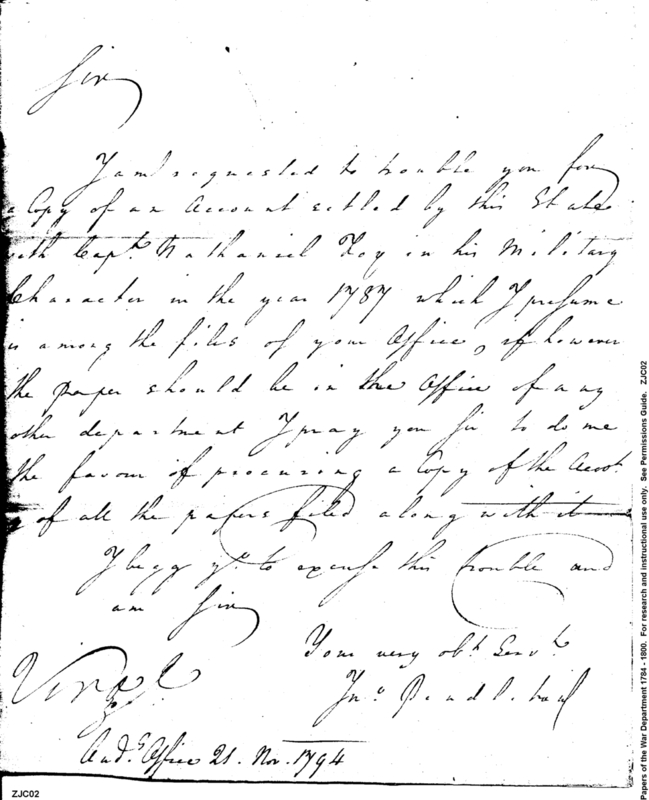 Sir
I am requested to trouble you for
a Copy of an Account settled by this State
with Capt. Nathaniel Fox in his Military
Character in the year 1787 which I presume
is among the files of your Office, if however
the paper should be in the Office of any
other department I pray you Sir to do me
the favour of procuring a Copy of the Accot.
& of all the papers filed along with it
I begg yo. to excuse this trouble and
am Sir
Your very obt. Servt.
Jno. Pendleton
Virga.
Aud.s Office 21. Nov. 1794
ZJC02
Papers of the War Department 1784 - 1800. For research and instructional use only. See Permissions Guide. ZJC02